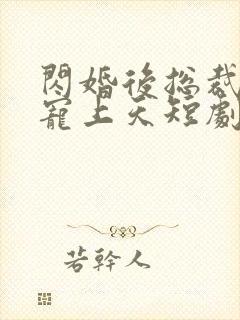 閃婚後総裁
寵上天短劇
若幹人